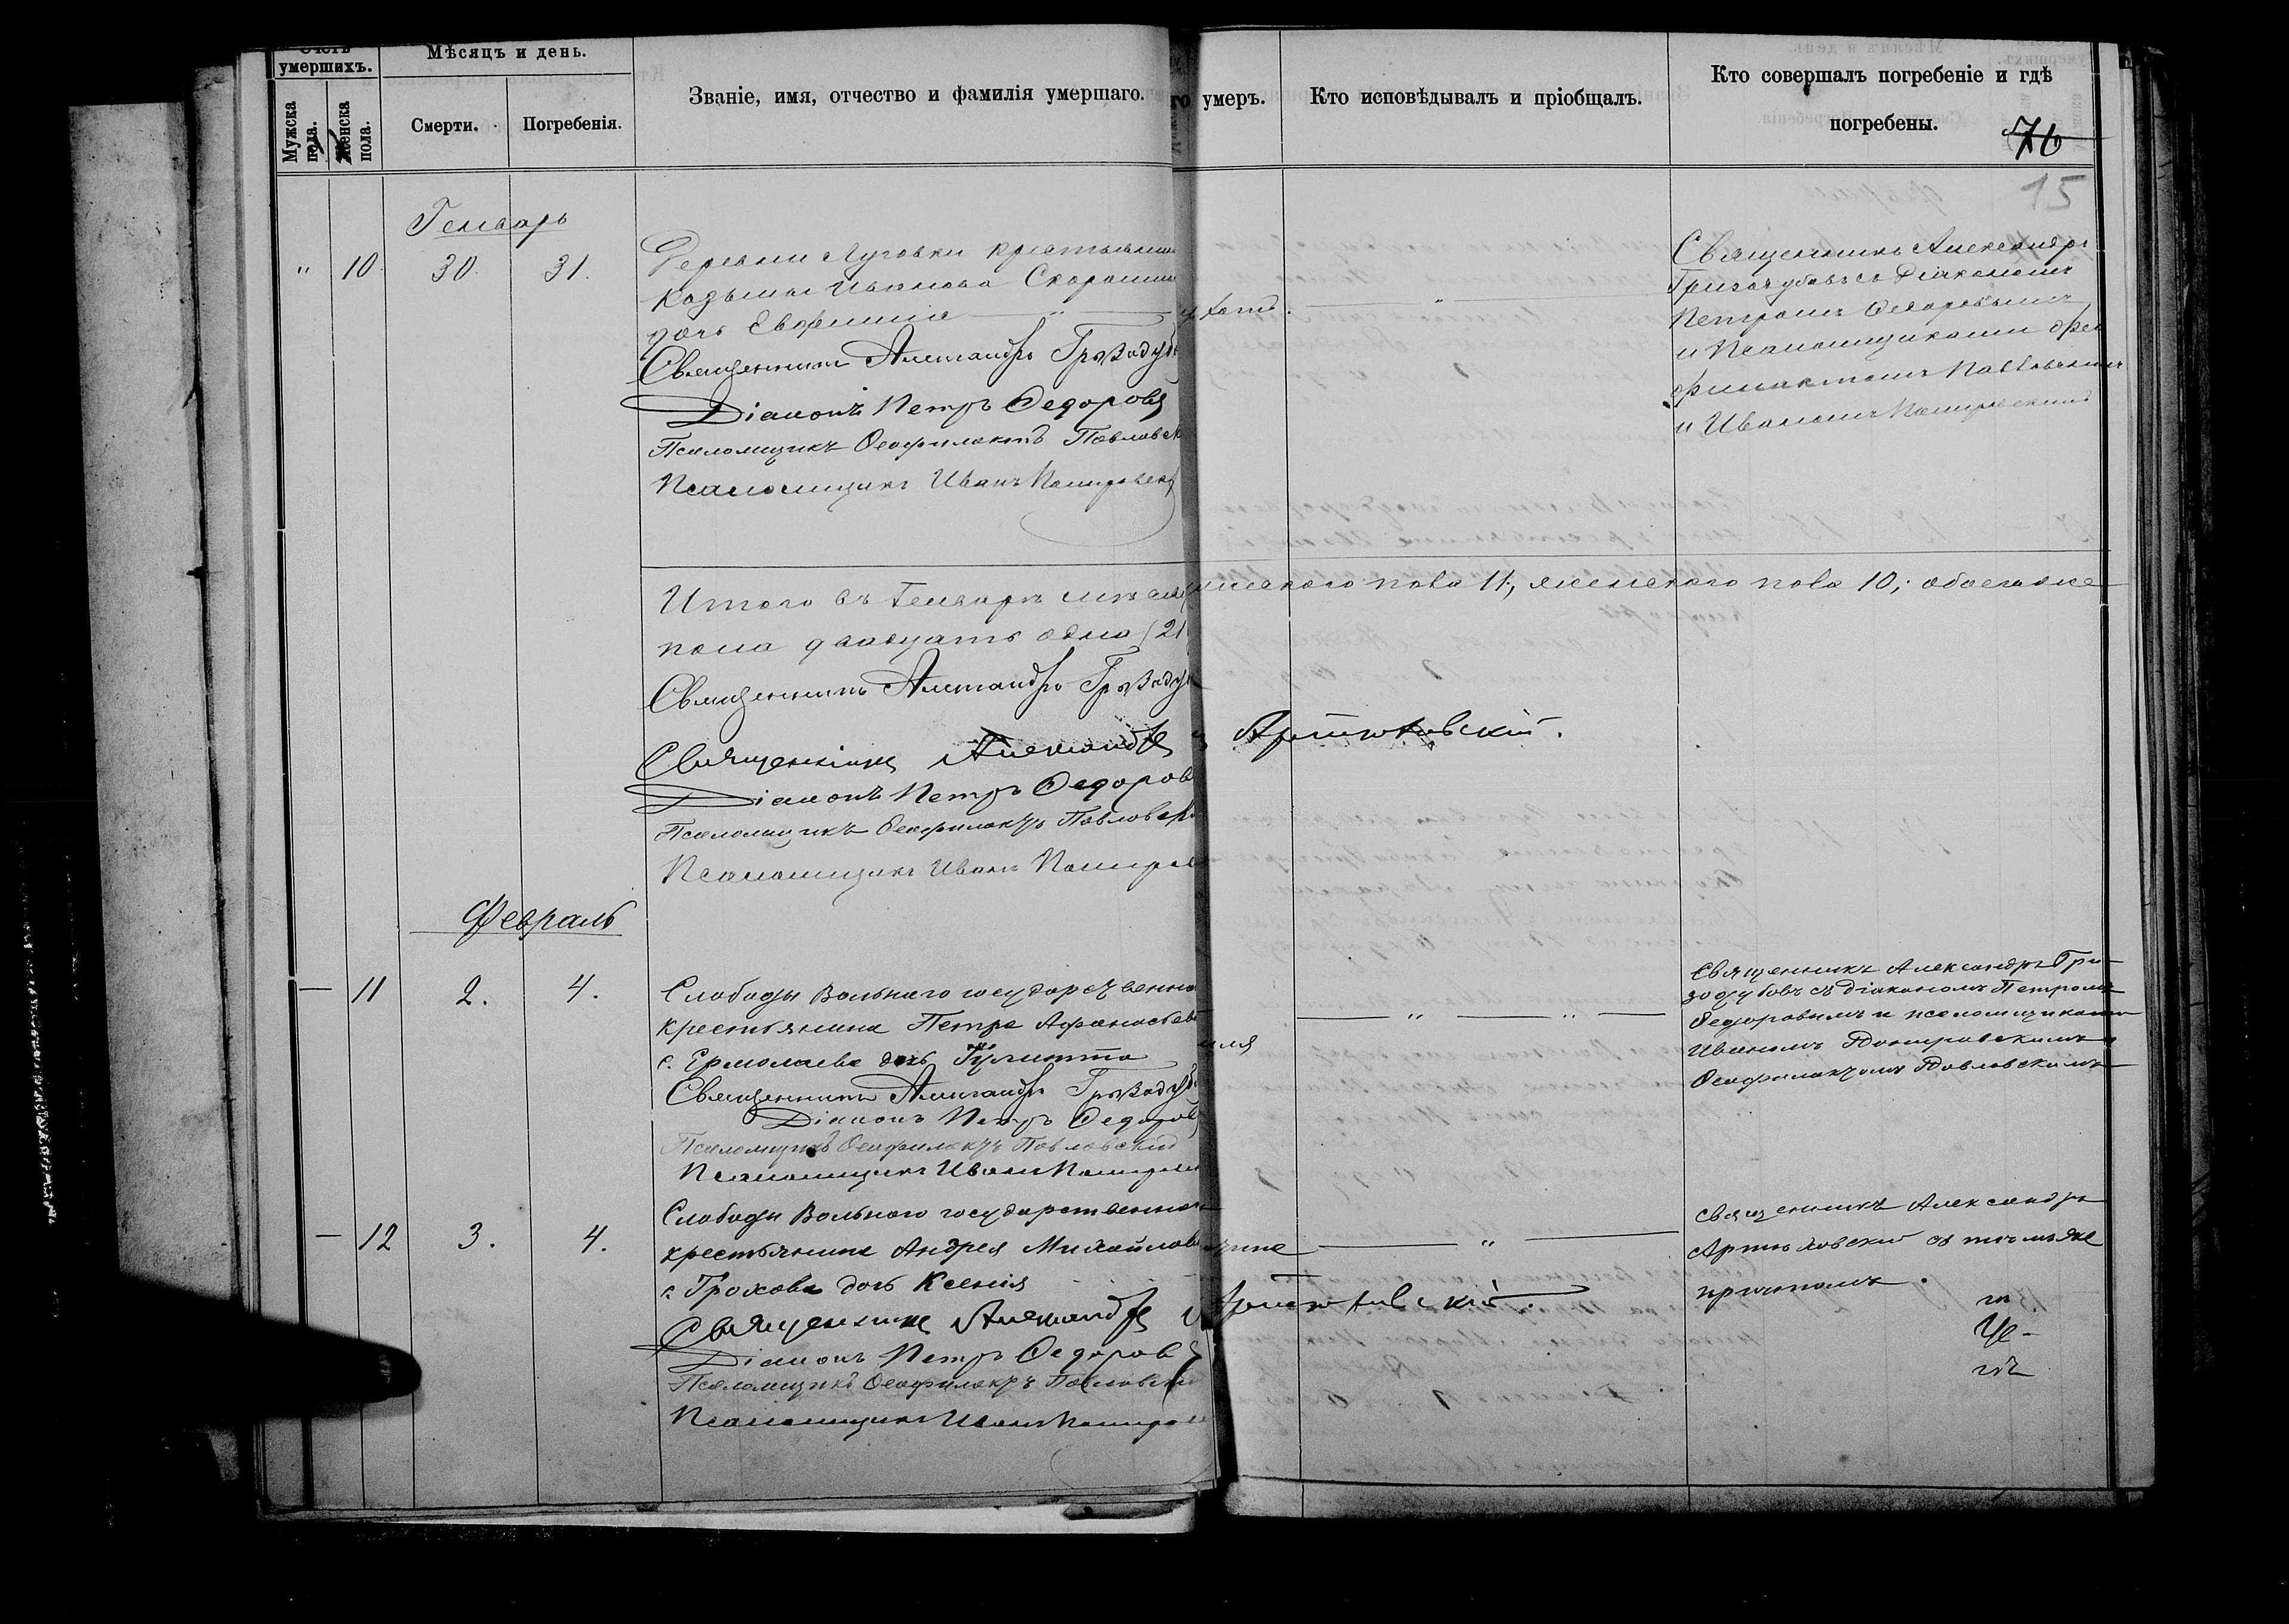 Счетъ умершихъ.
Мѣсяцъ и день.
Званіе, имя, отчество и фамилія умершаго.
го умеръ.
Кто исповѣдывалъ и пріобщалъ.
Кто совершалъ погребеніе и гдѣ
погребены.
Мужска пола.
Женска пола.
Смерти.
Погребенія.
76
15
Генварь
" 10. 30. 31.
Деревни Луговки крестьянина
Козьмы Иванова
дочь Евфимія
Священникъ Александръ Гризодуб
Діаконъ Петръ Ѳедоровъ
Псаломщикъ Ѳеофилактъ Павловск
Псаломщикъ Иванъ
"
Священникъ Александръ
Гризодубовъ съ Діакономъ
Петромъ Ѳедоровымъ
и Псаломщиками Ѳео
филактомъ Павловскимъ
и Иваномъ
Итого въ Генварѣ мѣсяц мужскаго пола 11, женскаго пола 10; обоего же
пола двадцать одно (21
Священникъ Александръ Гризоду
Священникъ Александръ Артюховскій.
Діаконъ Петръ Ѳедоров
Псаломщикъ Ѳеофилактъ Павловск
Псаломщикъ Иванъ
Февраль
— 11 2. 4.
Слободы Вольнаго государственна
крестьянина Петра Афанасьев
с. Ермолаева дочь Іулитта
Священникъ Александръ Гризодуб
Діаконъ Петръ Ѳедоров
Псаломщикъ Ѳеофилактъ Павловскій
Псаломщикъ Иванъ
— " — " —
Священникъ Александръ Гри-
зодубовъ съ діакономъ Петромъ
Ѳедоровымъ и псаломщиками
Иваномъ
Ѳеофилактомъ Павловскимъ
— 12 3. 4.
Слободы Вольнаго государственна
крестьянина Андрея Михайлов
с. Грохова дочь Ксенія
Священникъ Александръ Артюховскій.
Діаконъ Петръ Ѳедоровъ
Псаломщикъ Ѳеофилактъ Павловскі
Псаломщикъ Иванъ
— " —
священникъ Александръ
Артюховскій съ тѣмъ же
причтомъ.